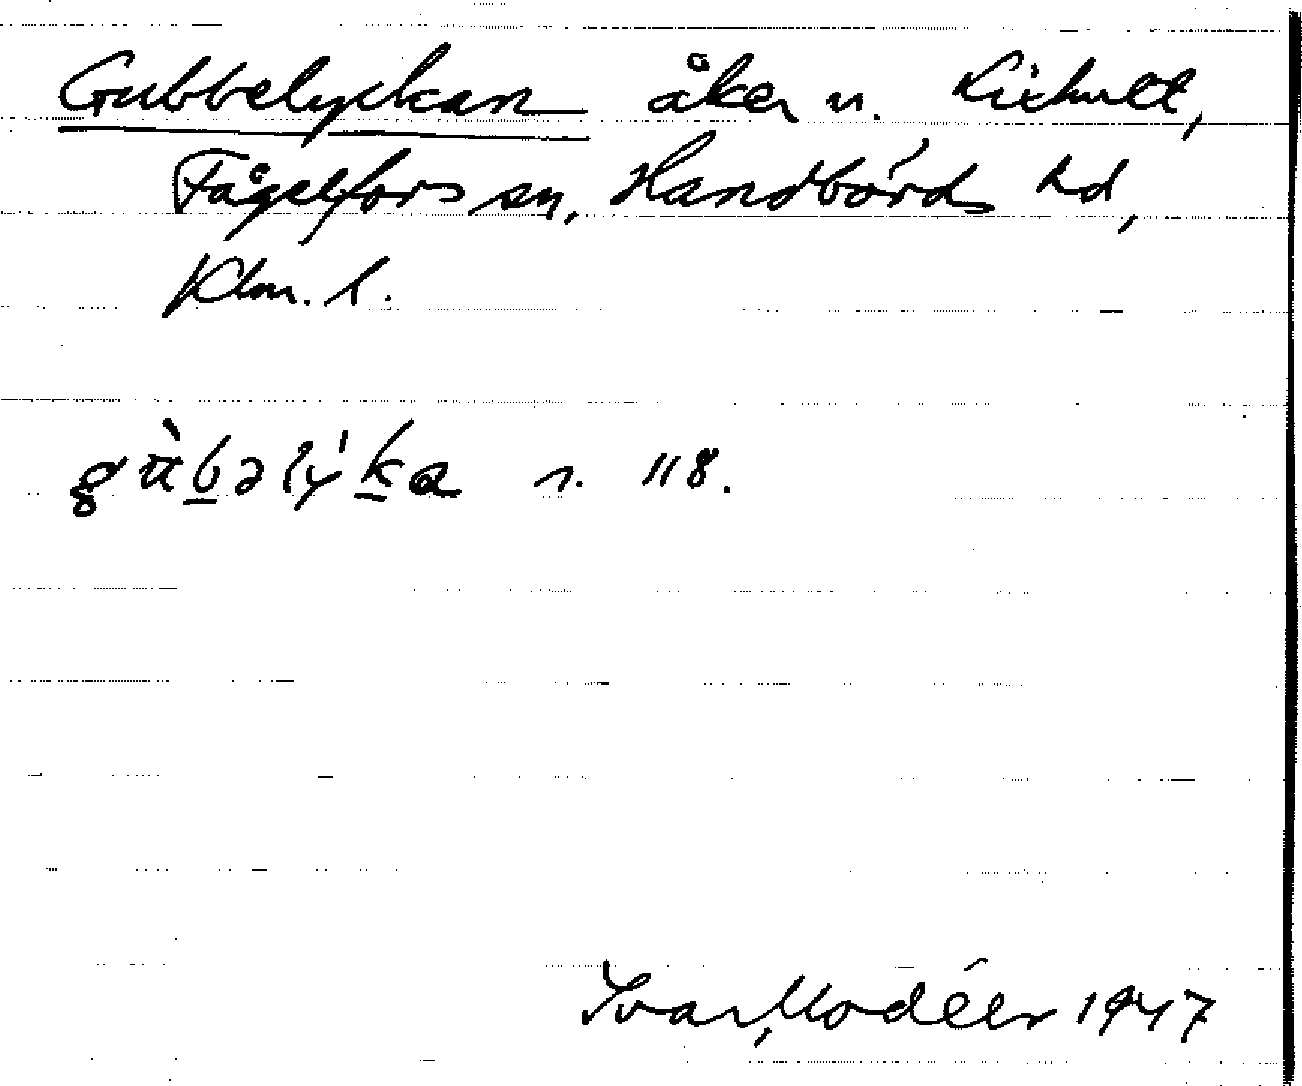 Gubbelyckan åker u. Lixhult,
Fågelfors sn, Handbörds hd,
Klm. l.
gù̀b̲əlý'k̲a s. 118.
Ivar Modéer 1947